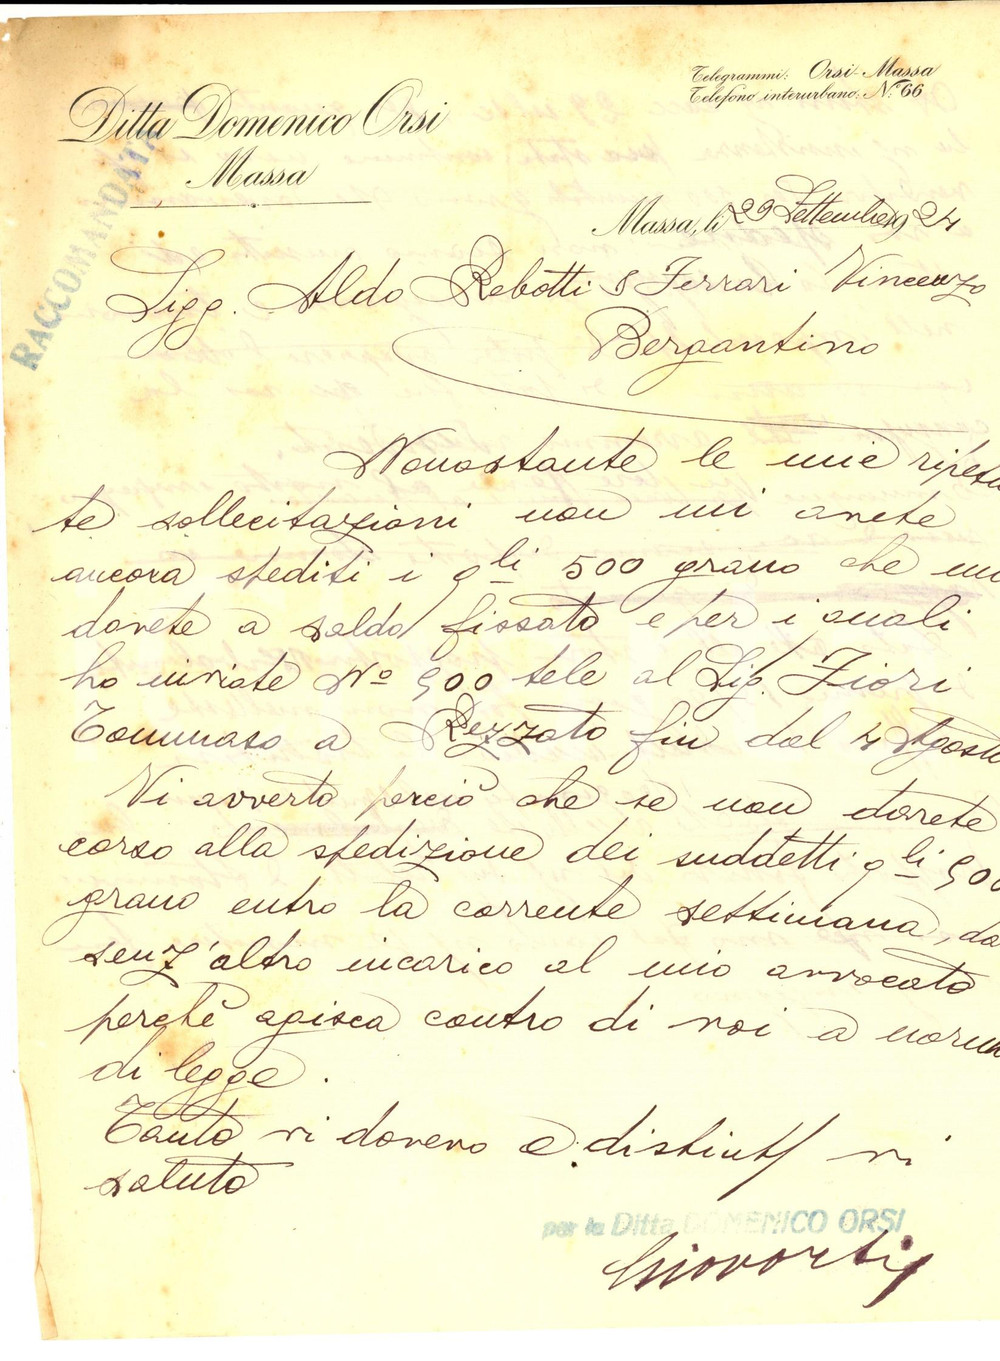 Telegrammi: Orsi-Massa
Telefono interurbano: N.º 66
Ditta Domenico Orsi
Massa
RACCOMANDATA
Massa, li 29 Settembre 1924
Sigg. Aldo Rebotti & Ferrari Vincenzo
Bergantino
Nonostante le mie ripetu
te sollecitazioni non mi avete
ancora spediti i qli 500 grano che mi
dovete a saldo fissato e per i quali
ho inviate Nº 500 tele al Sig. Fiori
Tommaso a Rezzato fin dal 4 Agosto
Vi avverto perciò che se non darete
corso alla spedizione dei suddetti qli 500
grano entro la corrente settimana, do
senz'altro incarico al mio avvocato
perchè agisca contro di voi a norma
di legge.
Tanto vi dovevo e distint/ vi
saluto
per la Ditta DOMENICO ORSI